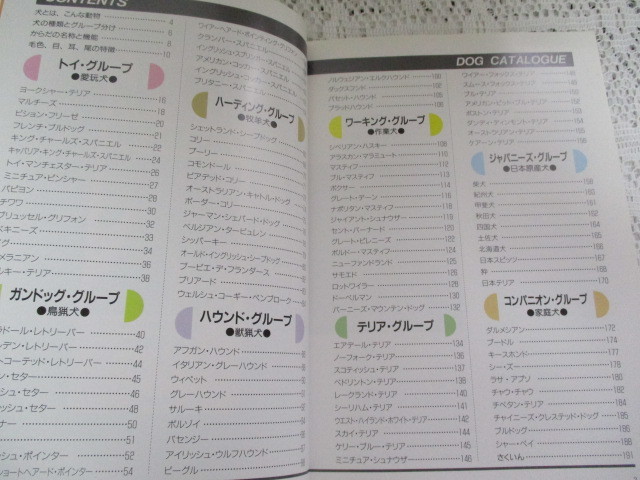 CONTENTS
犬とは、こんな動物 4
犬の種類とグループ分け 6
からだの名称と機能 8
毛色、目、耳、尾の特徴 10
トイ・グループ
●愛玩犬●
ヨークシャー・テリア 16
マルチーズ 18
ビション・フリーゼ 20
フレンチ・ブルドッグ 21
キング・チャールズ・スパニエル 22
キャバリア・キング・チャールズ・スパニエル 24
トイ・マンチェスター・テリア 26
ミニチュア・ピンシャー 27
パピヨン 28
チワワ 30
ブリュッセル・グリフォン 32
キニーズ 33
メラニアン 34
グ 36
ルキー・テリア 38
ガンドッグ・グループ
●鳥猟犬●
ラドール・レトリーバー 40
デン・レトリーバー 42
トコーテッド・レトリーバー 44
シュ・セター 45
ッシュ・セター 46
ュ・セター 48
ナー 50
51
ュ・ポインター 52
ショートヘアード・ポインター 54
ワイアーヘアード・ポインティング・グリフォン
クランバー・スパニエル
イングリッシュ・スプリンガー・スパニエル
アメリカン・コッカー・スパニエル
イングリッシュ・コッカー・スパニエル
ブリタニー・スパニエル
ハーディング・グループ
●牧羊犬●
シェットランド・シープドッグ
コリー
プーリー
コモンドール
ビアデッド・コリー
オーストラリアン・キャトル・ドッグ
ボーダー・コリー
ジャーマン・シェパード・ドッグ
ベルジアン・タービュレン
シッパーキー
オールド・イングリッシュ・シープドッグ
ブービエ・デ・フランダース
ブリアード
ウェルシュ・コーギー・ペンブローク
ハウンド・グループ
●獣猟犬●
アフガン・ハウンド
イタリアン・グレーハウンド
ウィペット
グレーハウンド
サルーキ
ボルゾイ
バセンジー
アイリッシュ・ウルフハウンド
ビーグル
DOG CATALOGUE
ノルウェジアン・エルクハウンド 100
ダックスフンド
バセット・ハウンド
ブラッドハウンド
ワーキング・グループ
●作業犬●
シベリアン・ハスキー 106
アラスカン・マラミュート 110
マスティフ 112
ブル・マスティフ
ボクサー
グレート・デーン
ナポリタン・マスティフ
ジャイアント・シュナウザー
セント・バーナード
グレート・ピレニーズ
ボルドー・マスティフ
ニューファンドランド
サモエド
ロットワイラー
ドーベルマン
バーニーズ・マウンテン・ドッグ 132
テリア・グループ
エアデール・テリア 134
ノーフォーク・テリア 136
スコティッシュ・テリア 137
ベドリントン・テリア 138
レークランド・テリア 140
シーリハム・テリア 141
ウエスト・ハイランド・ホワイト・テリア 142
スカイ・テリア 144
ケリー・ブルー・テリア 145
ミニチュア・シュナウザー 146
ワイアー・フォックス・テリア 148
スムース・フォックス・テリア
ブル・テリア
アメリカン・ピット・ブル・テリア
ボストン・テリア
ダンディ・ディンモント・テリア
オーストラリアン・テリア
ケアーン・テリア
ジャパニーズ・グループ
●日本原産犬●
柴犬
紀州犬
甲斐犬
秋田犬
四国犬
土佐犬
北海道犬
日本スピッツ
狆
日本テリア
コンパニオン・グループ
●家庭犬●
ダルメシアン 172
プードル 174
キースホンド 177
シー・ズー 178
ラサ・アプソ 180
チャウ・チャウ 182
チベタン・テリア 184
チャイニーズ・クレステッド・ドッグ 185
ブルドッグ 186
シャー・ペイ 188
さくいん 191